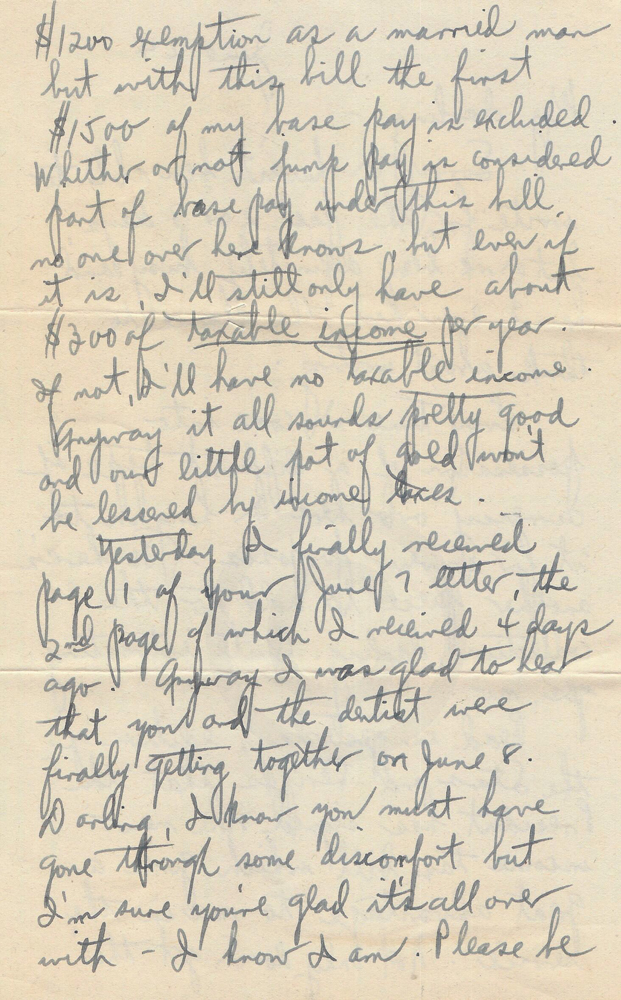 $1200 exemption as a married man
but with this bill the first
$1500 of my base pay is excluded.
Whether or not jump pay is considered
part of base pay under this bill,
no one over here knows, but even if
it is, I'll still only have about
$300 of taxable income per year.
If not, I'll have no taxable income.
Anyway it all sounds pretty good
and our little pot of gold won't
be lessened by income taxes.
Yesterday I finally received
page 1 of your June 7 letter, the
2nd page of which I received 4 days
ago. Anyway I was glad to hear
that you and the dentist were
finally getting together on June 8.
Darling, I know you must have
gone through some discomfort but
I'm sure you're glad it's all over
with - I know I am. Please be